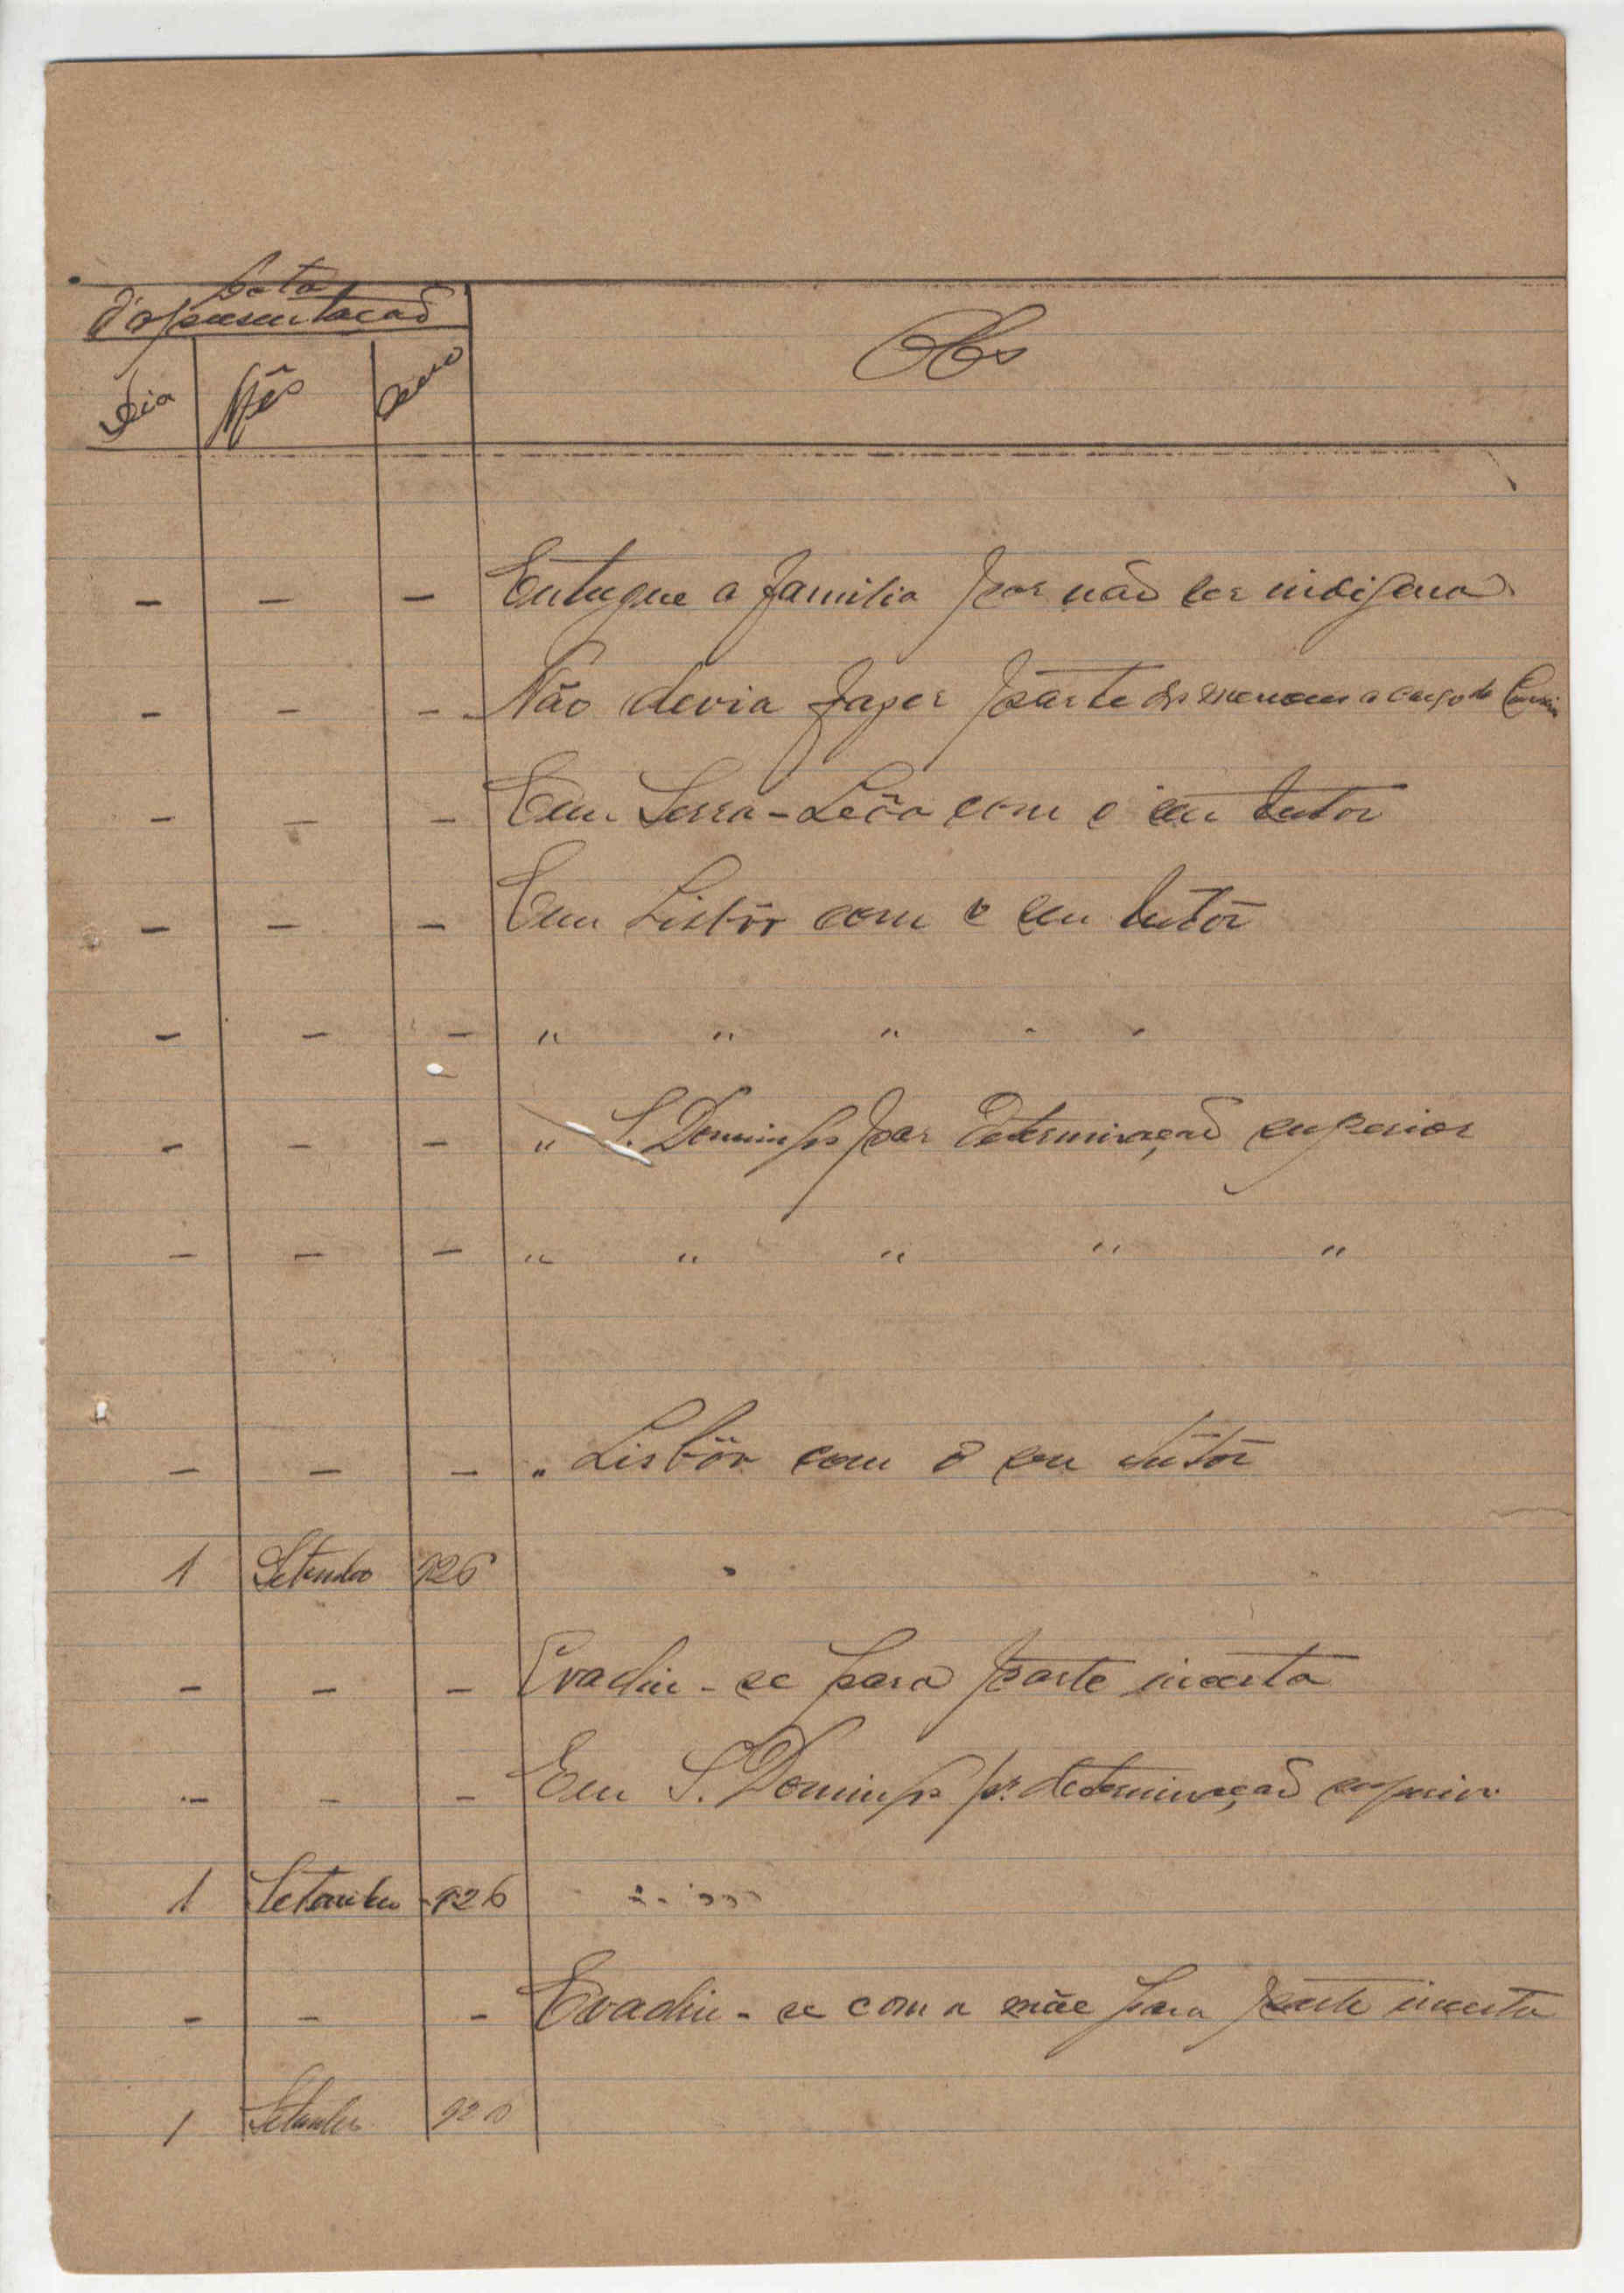 Data
d'apresentação
Dia Mês Ano Obs
- - - Entregue a familia por não ser indigena
- - - Não devia fazer parte dos menores a cargo da
- - - Em Serra-Leôa com o seu tutor
- - - Em Lisbôa com o seu tutôr
- - - " " " " "
- - - " S. Domingos por determinação superior
- - - " " " " "
- - - " Lisbôa com o seu tutôr
1 Setembro 926
- - - Evadiu-se para parte incerta
- - - Em S. Domingos pr. determinação superior
1 Setembro 926
- - - Evadiu-se com a mãe para parte incerta
1 Setembro